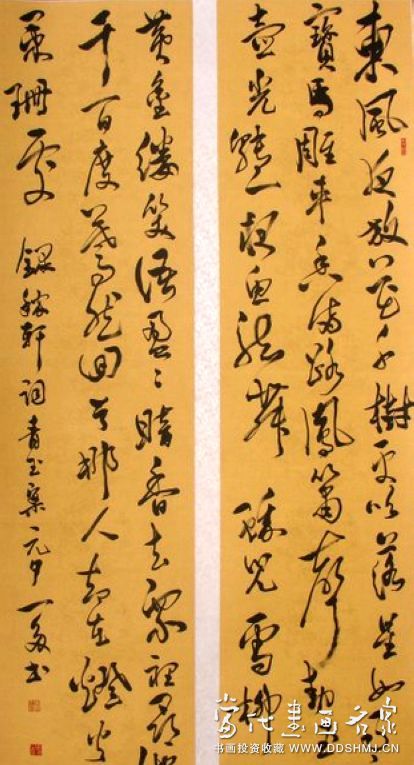 東風夜放花千樹更吹落星如雨
寶馬雕車香滿路鳳簫聲動玉
壺光轉一夜魚龍舞 蛾兒雪柳
黃金縷笑語盈〻暗香去眾裡尋他
千百度驀然回首那人却在燈火
闌珊處 錄稼軒詞青玉案元夕 書
當代書畫名家
书画投资收藏 WWW.DDSHMJ.CN